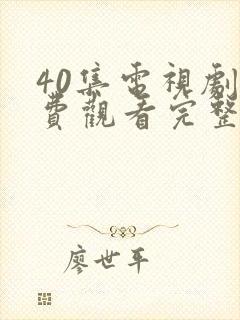 40集電視劇
費觀看完整
廖世平